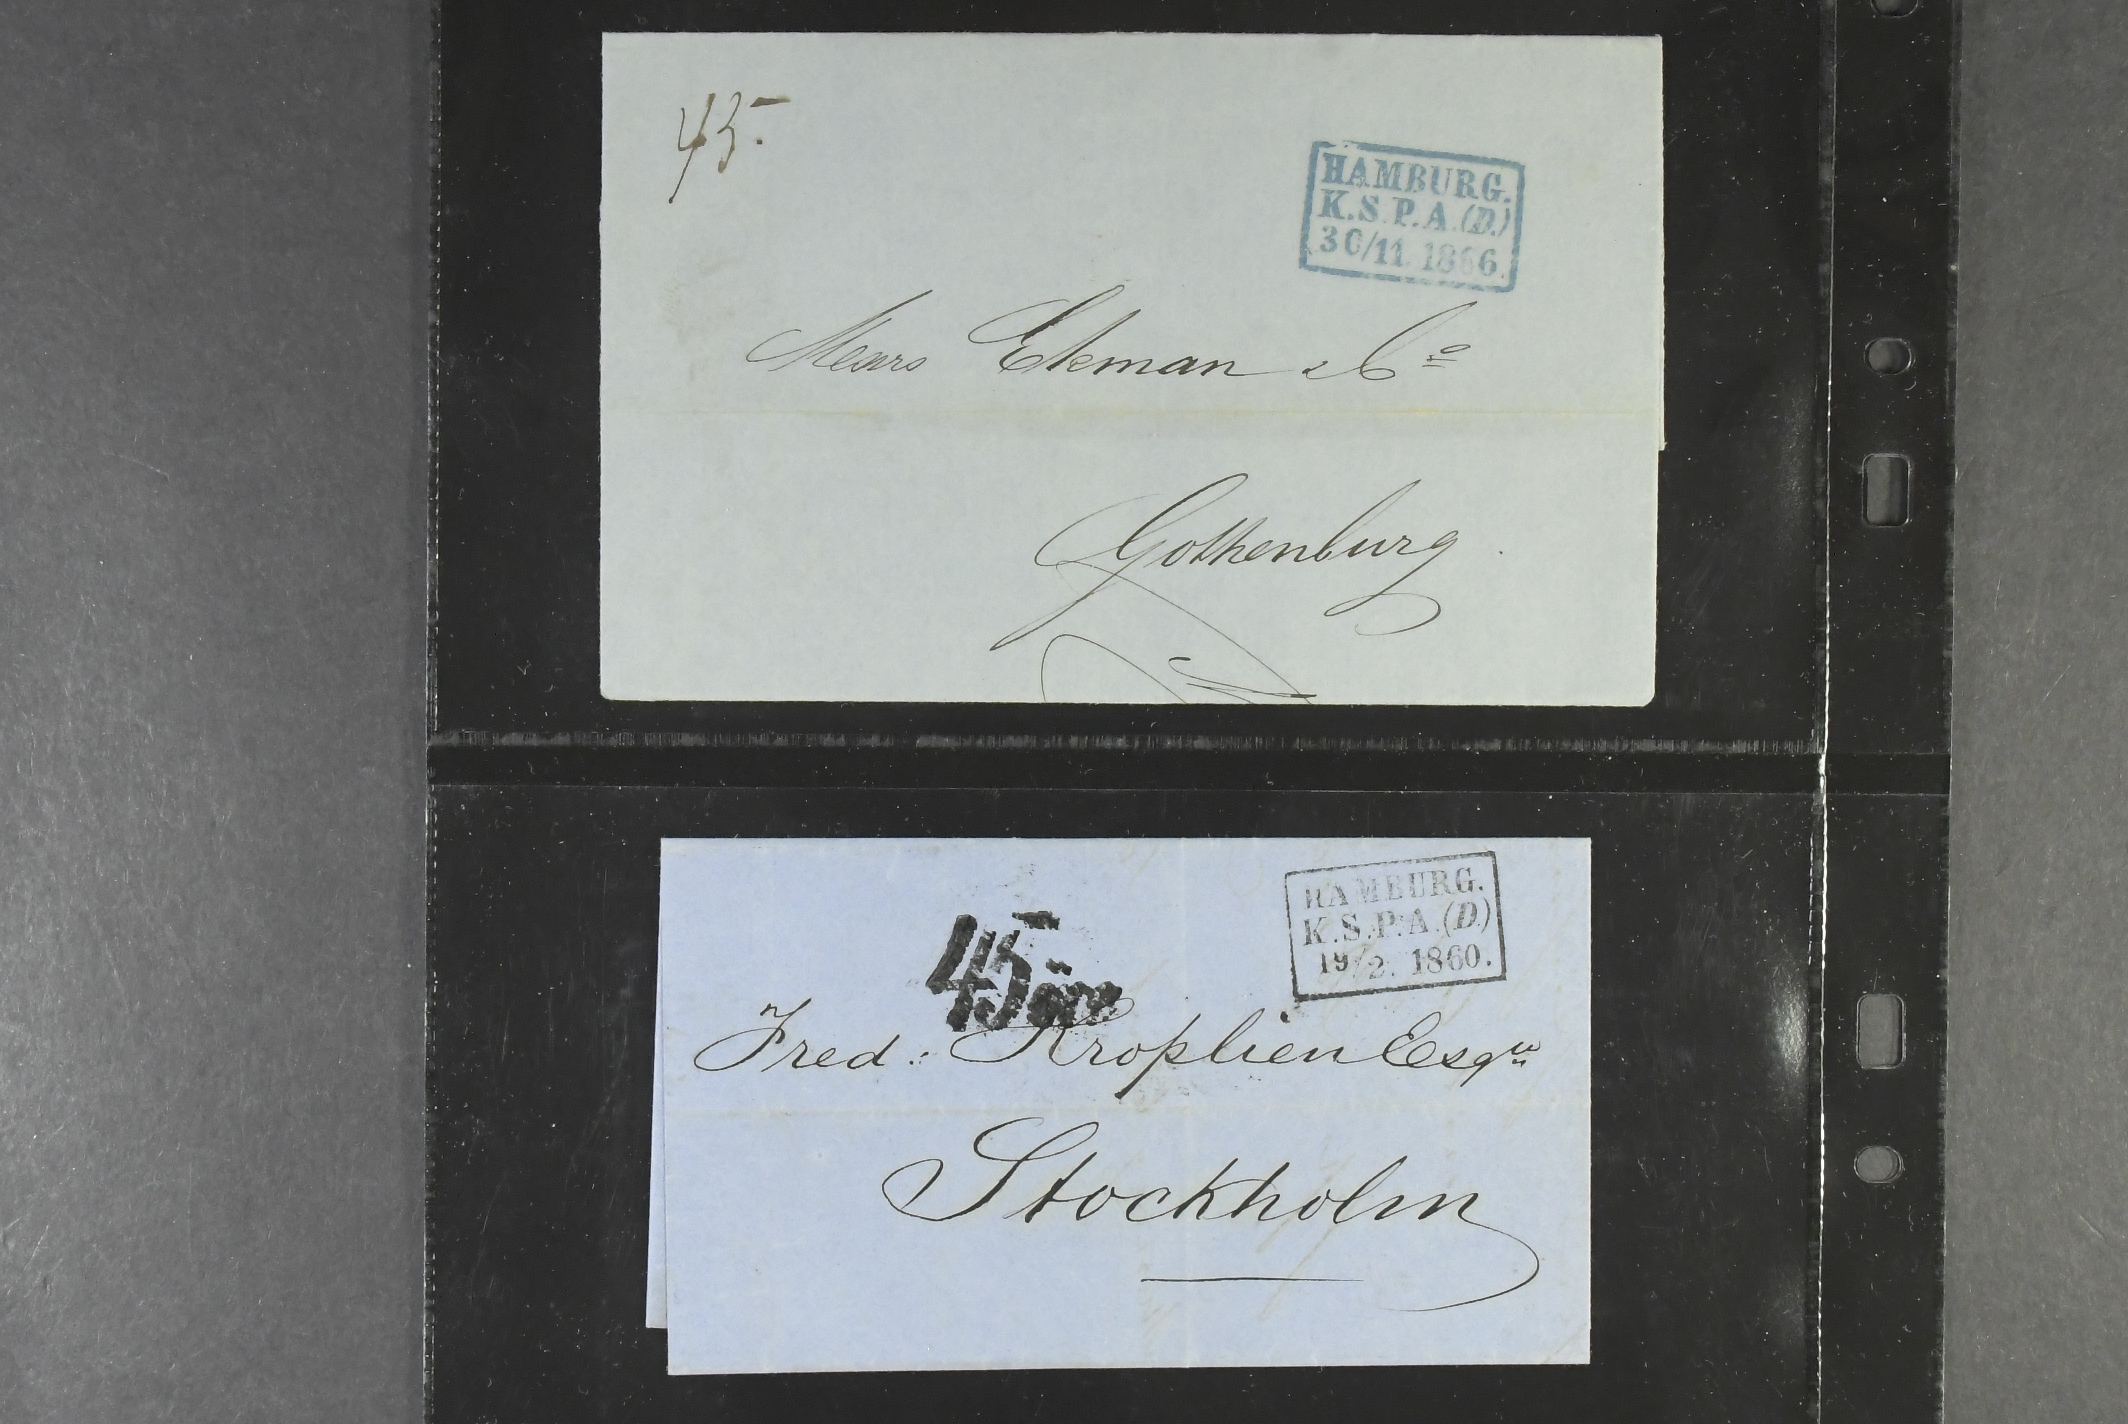 45-
HAMBURG.
K.S.P.A.(D.)
30/11. 1866.
Messrs Ekman & Co
Gothenburg
45 öre
HAMBURG.
K.S.P.A.(D.)
19/2. 1860.
Fred. Kroplien Esqre
Stockholm